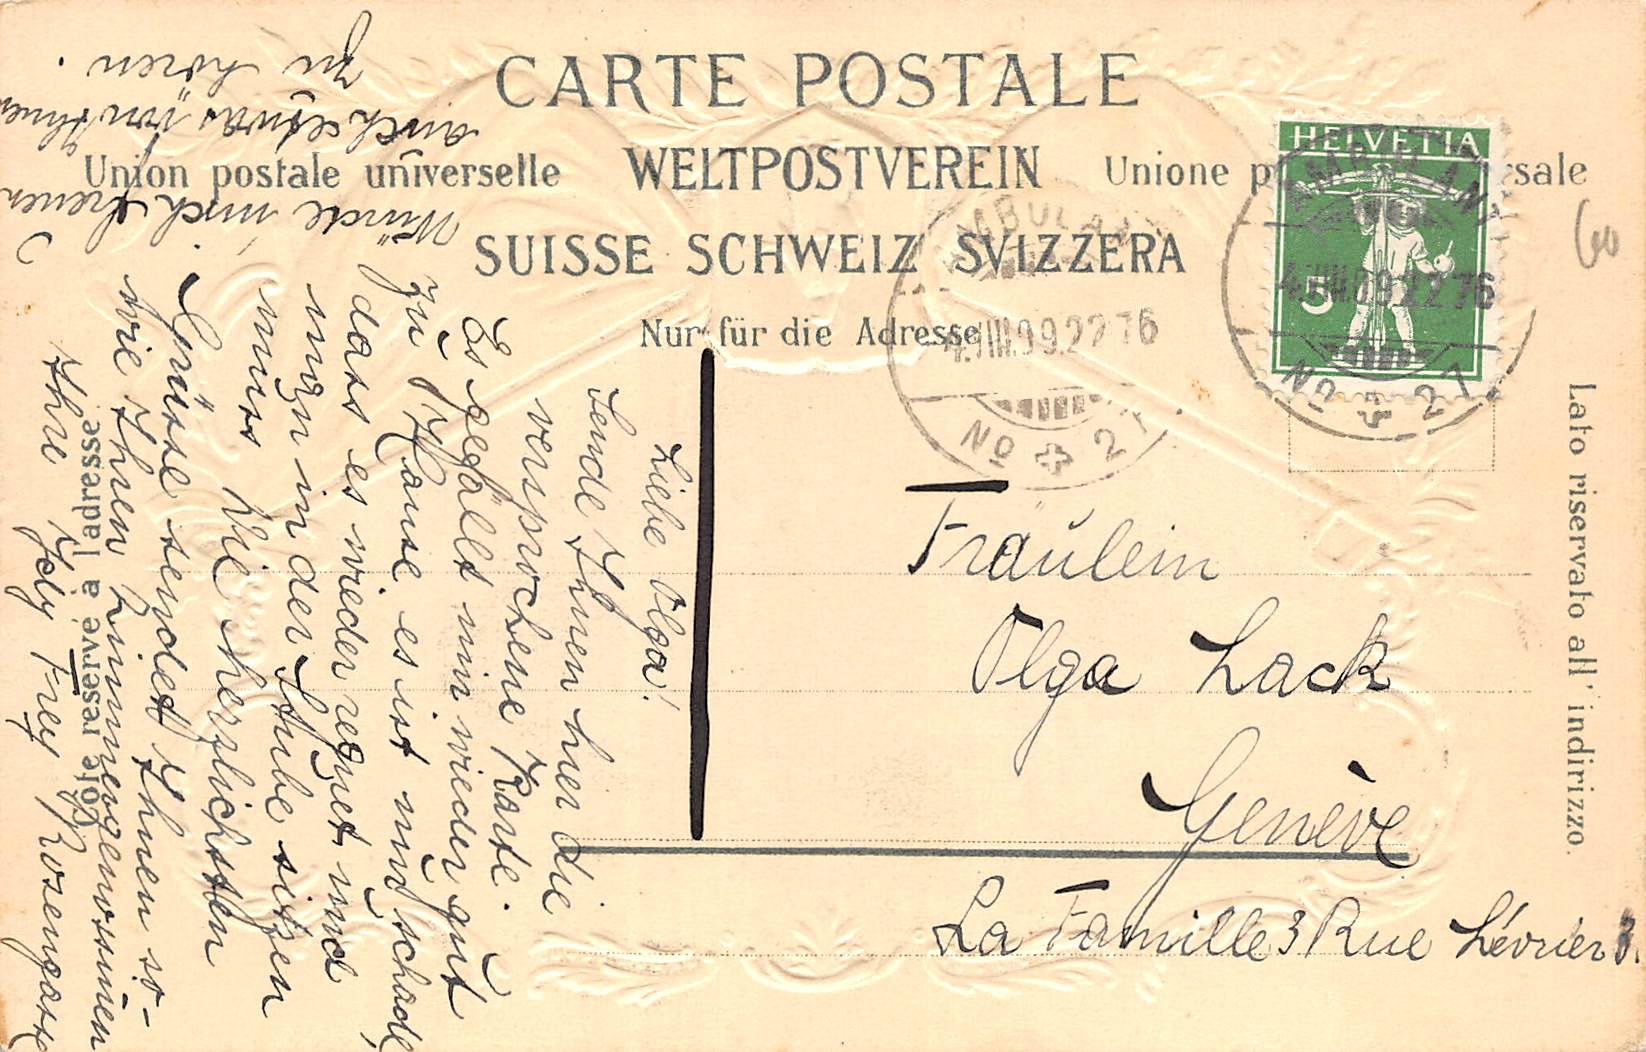 CARTE POSTALE
Union postale universelle WELTPOSTVEREIN Unione p sale
SUISSE SCHWEIZ SVIZZERA
Nur für die Adresse
Côté réservé à l'adresse
Lato riservato all' indirizzo.
HELVETIA
5
AMBULANT
4.VIII.09.22 76
No 27
AMBULANT
4.VIII.09.22 76
No 27
Fräulein
Olga Lack
Genève
La Famille 3 Rue Lévrier 3.
Liebe Olga!
Sende Ihnen hier die
versprochene Karte.
Es gefällt mir wieder gut
zu Hause es ist nur schade,
dass es wieder regnet und
man in der Stube sitzen
muss. Die herzlichsten
Grüsse sendet Ihnen so-
wie Ihren Zimmergenossinen
Ihre Idy Frey Rosengasse
Würde mich freuen
auch etwas von Ihnen
zu hören.